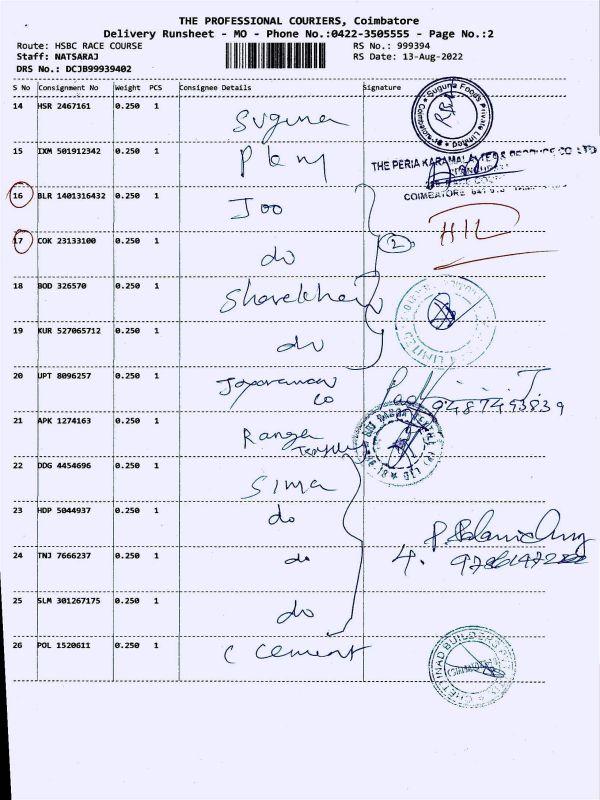 THE PROFESSIONAL COURIERS, Coimbatore
Delivery Runsheet - MO - Phone No.:0422-3505555 - Page No.:2
Route: HSBC RACE COURSE
RS No.: 999394
Staff: NATSARAJ
RS Date: 13-Aug-2022
DRS No.: DCJB99939402
S No Consignment No Weight PCS Consignee Details Signature
14 HSR 2467161 0.250 1 Suguna
Suguna Foods Private Limited
15 IXM 501912342 0.250 1
THE PERIA KARAMALAI TEA & PRODUCE CO LTD
COIMBATORE
16 BLR 1401316432 0.250 1 Joo
17 COK 23133100 0.250 1 do
2 HIL
18 BOD 326570 0.250 1 Sharekhan
19 KUR 527065712 0.250 1 do
LIMITED
20 UPT 8096257 0.250 1 Co
9487453839
21 APK 1274163 0.250 1 Ranga
22 DDG 4454696 0.250 1 Sima
23 HDP 5044937 0.250 1 do
24 TNJ 7666237 0.250 1 do 4.
25 SLM 301267175 0.250 1 do
26 POL 1520611 0.250 1 C Cement
CHETTINAD BUILDERS